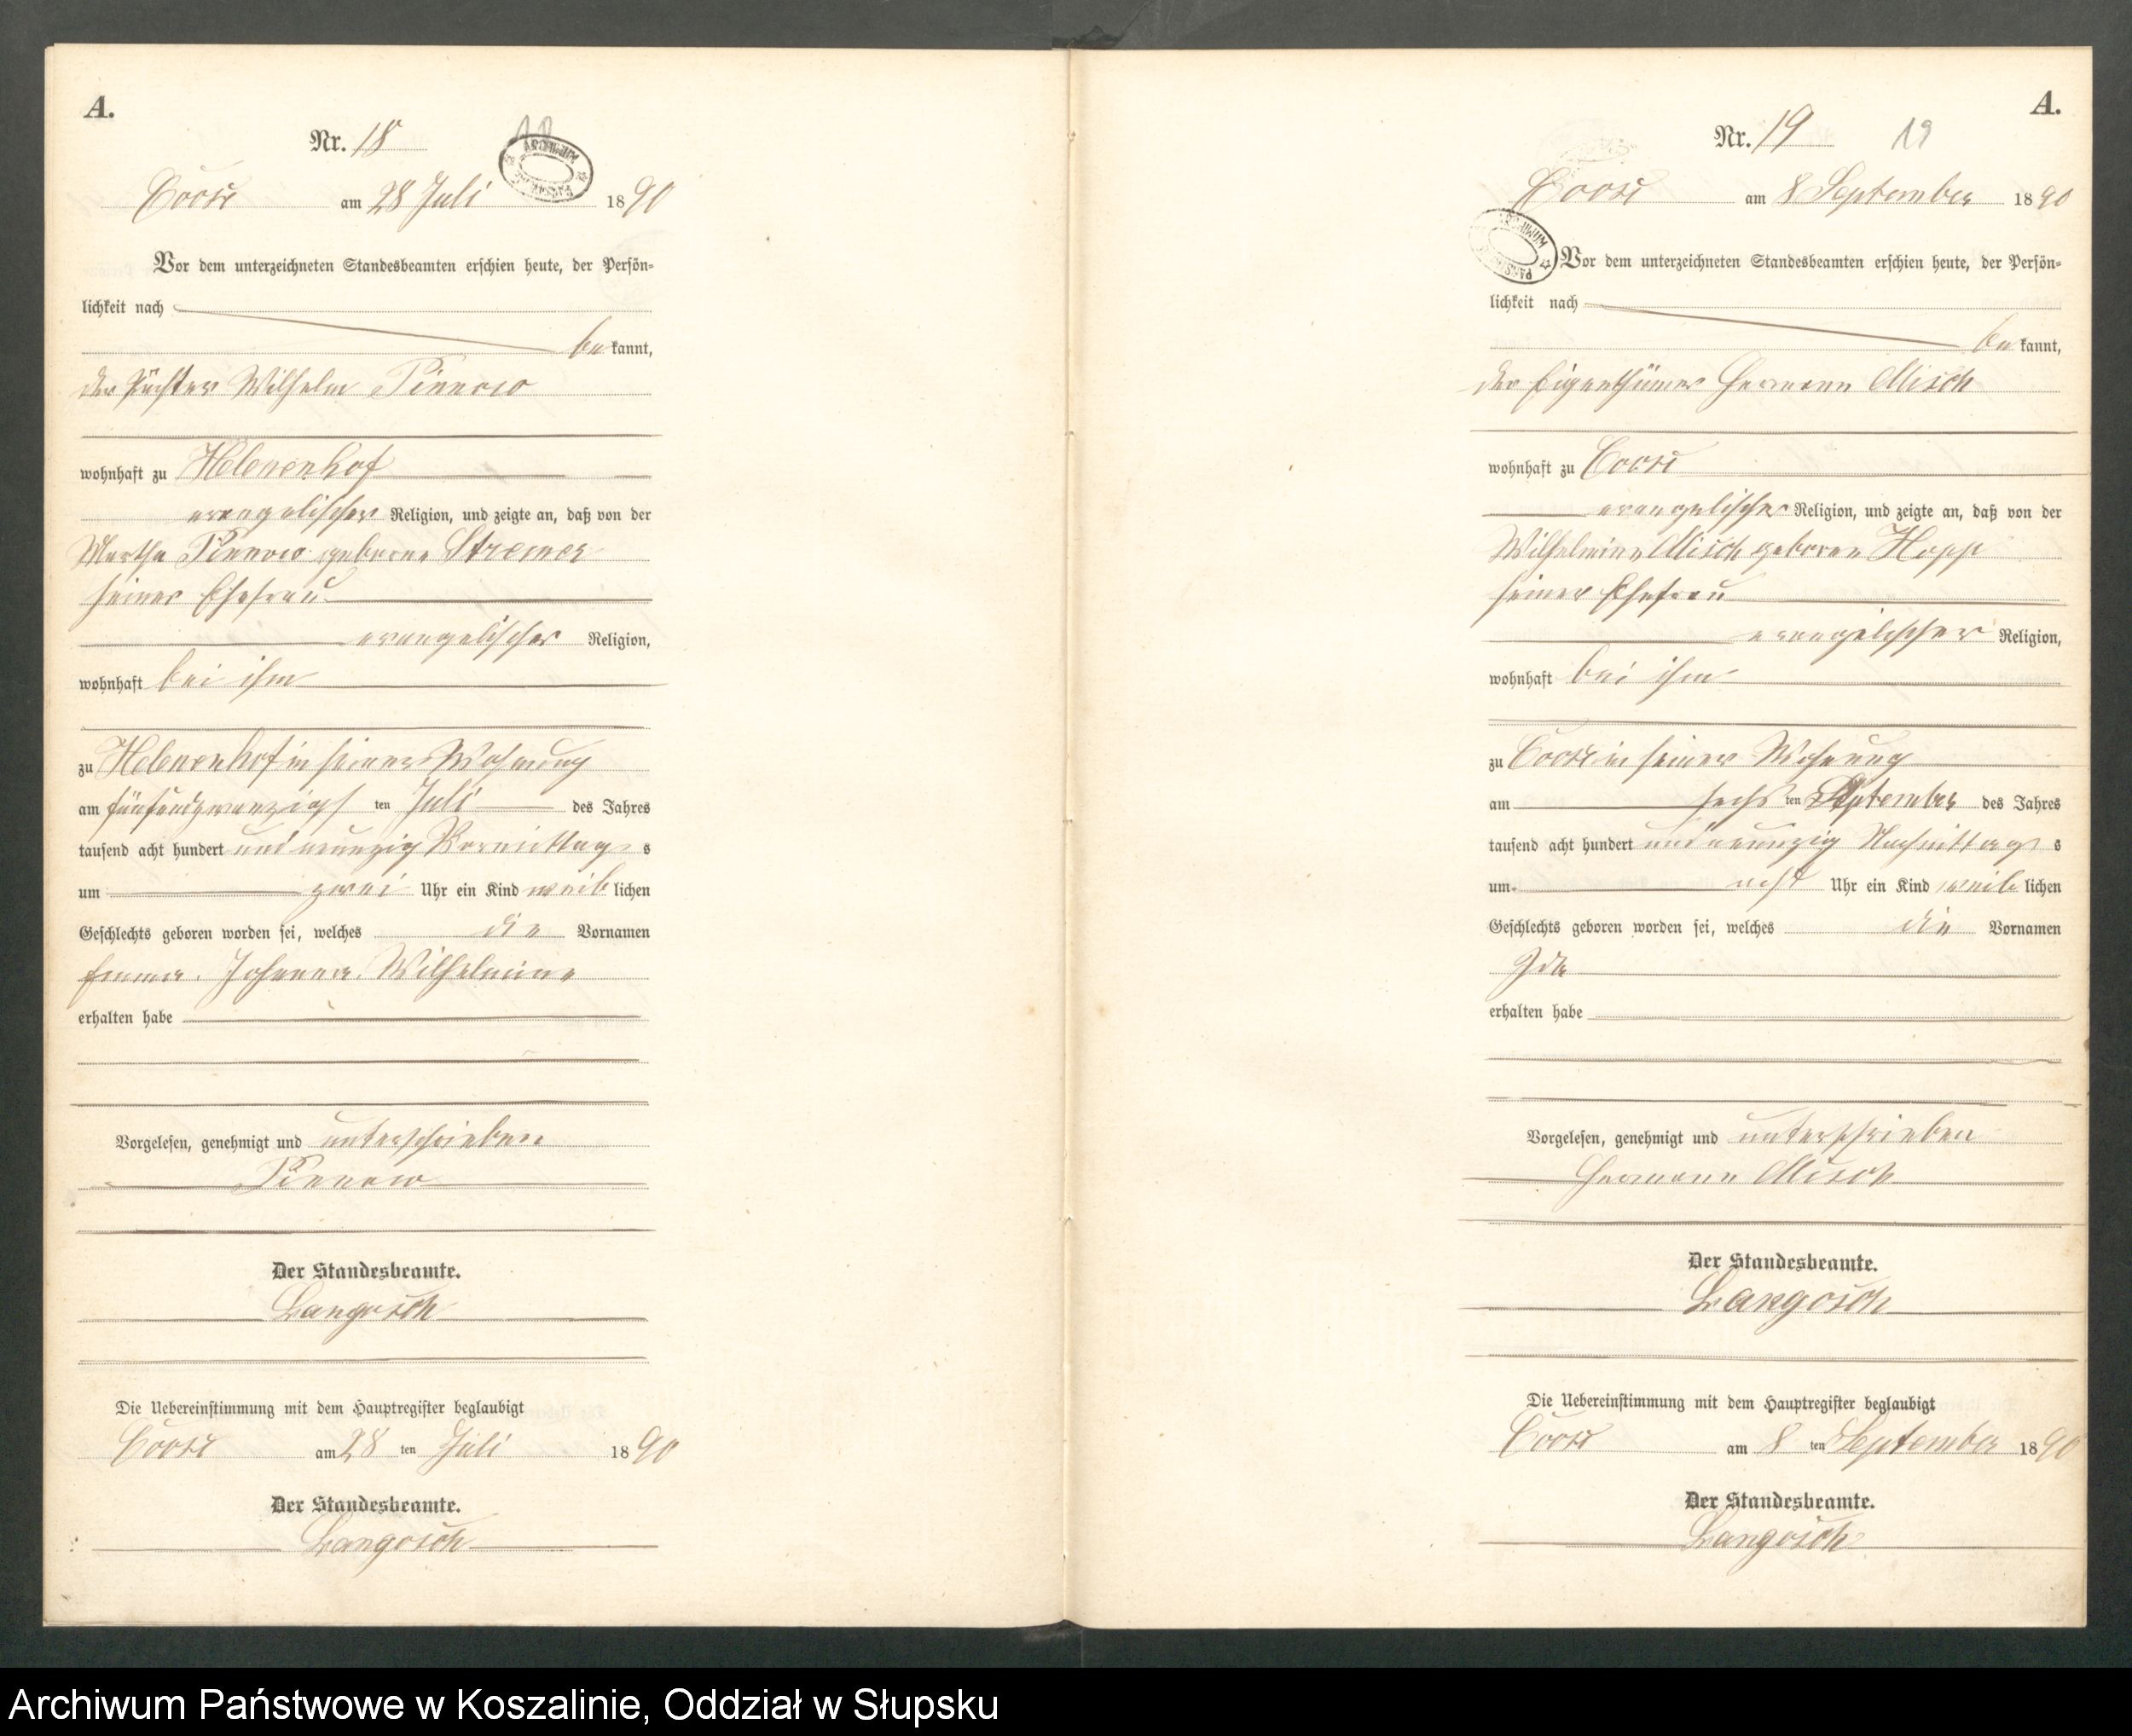 A.
Nr. 18
Coose am 28 Juli 1890
Vor dem unterzeichneten Standesbeamten erschien heute, der Persön-
lichkeit nach
be kannt,
der Pächter Wilhelm Pinnow
wohnhaft zu Helenenhof
evangelischer Religion, und zeigte an, daß von der
Martha Pinnow geborne Stremer
seiner Ehefrau
evangelischer Religion,
wohnhaft bei ihm
zu Helenenhof in seiner Wohnung
am fünfundzwanzigs ten Juli des Jahres
tausend acht hundert und neunzig Vormittag s
um zwei Uhr ein Kind weib lichen
Geschlechts geboren worden sei, welches die Vornamen
Emma Johanna Wilhelmine
erhalten habe
Vorgelesen, genehmigt und unterschrieben
Pinnow
Der Standesbeamte.
Langosch
Die Uebereinstimmung mit dem Hauptregister beglaubigt
Coose am 28 ten Juli 1890
Der Standesbeamte.
Langosch
A.
Nr. 19 19
Coose am 8 September 1890
Vor dem unterzeichneten Standesbeamten erschien heute, der Persön-
lichkeit nach
be kannt,
der Eigenthümer Hermann Misch
wohnhaft zu Coose
evangelischer Religion, und zeigte an, daß von der
Wilhelmine Misch geboren Hopp
seiner Ehefrau
evangelischer Religion,
wohnhaft bei ihm
zu Coose in seiner Wohnung
am sechs ten September des Jahres
tausend acht hundert und neunzig Nachmittag s
um acht Uhr ein Kind weib lichen
Geschlechts geboren worden sei, welches die Vornamen
Ida
erhalten habe
Vorgelesen, genehmigt und unterschrieben
Hermann Misch
Der Standesbeamte.
Langosch
Die Uebereinstimmung mit dem Hauptregister beglaubigt
Coose am 8 ten September 1890
Der Standesbeamte.
Langosch
Archiwum Państwowe w Koszalinie, Oddział w Słupsku